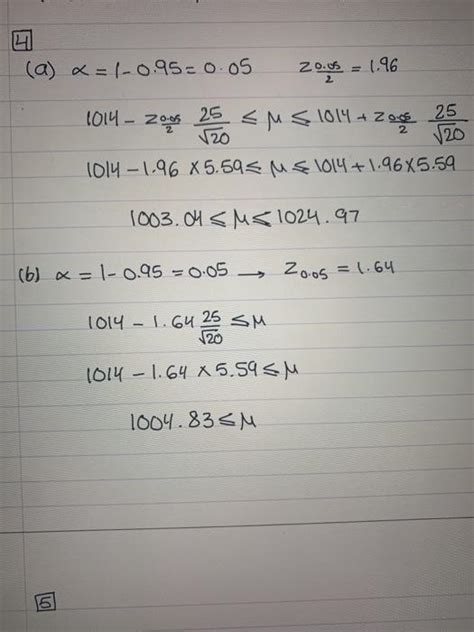 4
(a) α = 1 - 0.95 = 0.05 z_{0.05/2} = 1.96
1014 - z_{0.05/2} 25/√20 ≤ μ ≤ 1014 + z_{0.05/2} 25/√20
1014 - 1.96 × 5.59 ≤ μ ≤ 1014 + 1.96 × 5.59
1003.04 ≤ μ ≤ 1024.97
(b) α = 1 - 0.95 = 0.05 → z_{0.05} = 1.64
1014 - 1.64 25/√20 ≤ μ
1014 - 1.64 × 5.59 ≤ μ
1004.83 ≤ μ
5